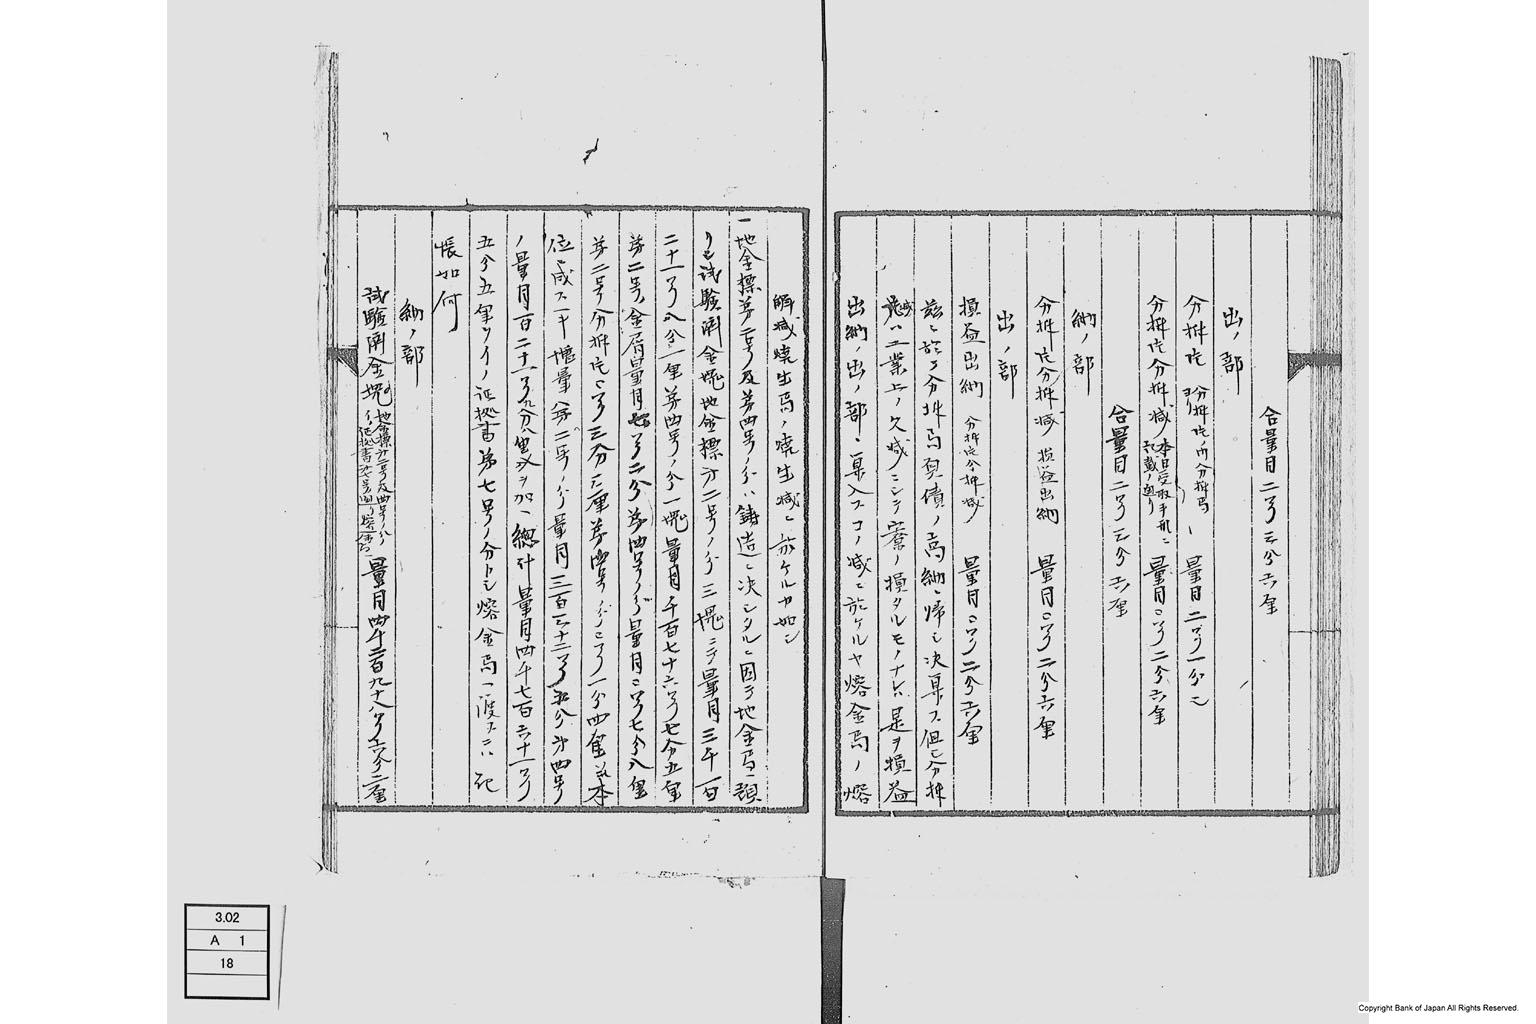 合量目二〇三分六厘
出ノ部
分拆浣 分拆浣ノ内分拆局ヨリ 量目二〇一分
分拆浣分拆減 本日受取手形ニ記載ノ通リ 量目〇〇二分六厘
合量目二〇三分六厘
納ノ部
分拆浣分拆減 損益出納 量目〇〇二分六厘
出ノ部
損益出納 分拆浣分拆減 量目〇〇二分六厘
茲ニ於テ分拆局負債ノ高納ニ帰シ決算ス但シ分拆
減ハ工業上ノ欠減ニシテ寮ノ損タルモノナレハ是ヲ損益
出納ノ出ノ部ニ算入スコノ減ニ於ケルヤ熔金局ノ熔
解減焼生局ノ焼生減ニ於ケルカ如シ
一地金標第二号及第四号ノ分ハ鋳造ニ決シタルニ因テ地金局ニ頭
リシ試験済金塊地金標第二号ノ分三塊ニテ量目三千一百
二十一〇八分一厘第四号ノ分一塊量目千百七十六〇七分五厘
第二号金屑量目〇二分第四号ノ分量目二〇七分八厘
第二号分拆浣〇〇三分二厘第四号ノ分二〇一分四厘並本
位ニ成ス一キ増量第二号ノ分量目三百三十三〇五分第四号
ノ量目百二十一〇九分八厘ヲ加ヘ總計量目四千七百六十一〇
五分五厘ツイノ証拠書第七号ノ分トシ熔金局ヘ渡スニハ記
帳如何
納ノ部
試験済金塊 地金標第二号及四号ノ分 証拠書第七号ノ通リ熔金局ニ 量目四千二百九十八〇六分二厘
3.02
A 1
18
Copyright Bank of Japan All Rights Reserved.